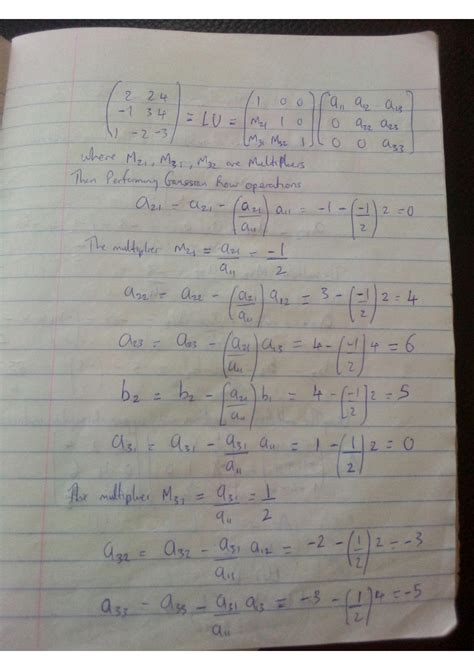 ( 2 2 4 ; -1 3 4 ; 1 -2 -3 ) = LU = ( 1 0 0 ; M21 1 0 ; M31 M32 1 ) ( a11 a12 a13 ; 0 a22 a23 ; 0 0 a33 )
where M21, M31, M32 are Multipliers
Then Performing Gaussian Row operations
a21 = a21 - (a21/a11) a11 = -1 - (-1/2) 2 = 0
The multiplier M21 = a21/a11 = -1/2
a22 = a22 - (a21/a11) a12 = 3 - (-1/2) 2 = 4
a23 = a23 - (a21/a11) a13 = 4 - (-1/2) 4 = 6
b2 = b2 - (a21/a11) b1 = 4 - (-1/2) 2 = 5
a31 = a31 - a31/a11 a11 = 1 - (1/2) 2 = 0
The multiplier M31 = a31/a11 = 1/2
a32 = a32 - a31/a11 a12 = -2 - (1/2) 2 = -3
a33 = a33 - a31/a11 a13 = -3 - (1/2) 4 = -5